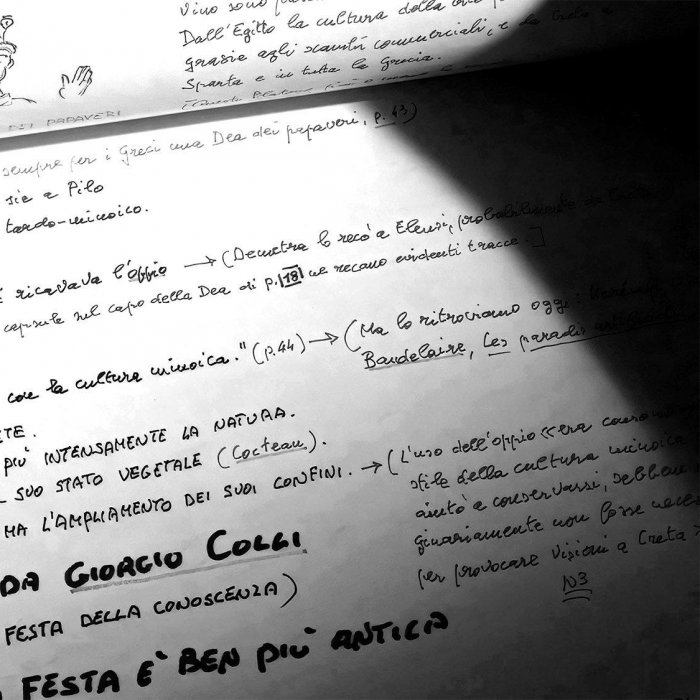 vino sono
Dall'Egitto la cultura della
grazie agli scambi commerciali, e da Creta a
Sparta e in tutta la Grecia.
DEI PAPAVERI
sempre per i Greci una Dea dei papaveri, p. 43)
sie a Pilo
tardo-minoico.
ricavava l'oppio → (Demetra lo recò a Eleusi, probabilmente da Creta
capsule sul capo della Dea di p. 18 ne recano evidenti tracce.]
con la cultura minoica." (p.44) → (Ma lo ritroviamo oggi:
Baudelaire, Les paradis artificiels
ETE.
PIU' INTENSAMENTE LA NATURA.
SUO STATO VEGETALE (Cocteau).
MA L'AMPLIAMENTO DEI SUOI CONFINI. → (L'uso dell'oppio «era
stile della cultura minoica
aiutò a conservarsi, sebbene
ginariamente non fosse
per provocare visioni a Creta
N3
DA GIORGIO COLLI
FESTA DELLA CONOSCENZA)
FESTA E' BEN PIU' ANTICA